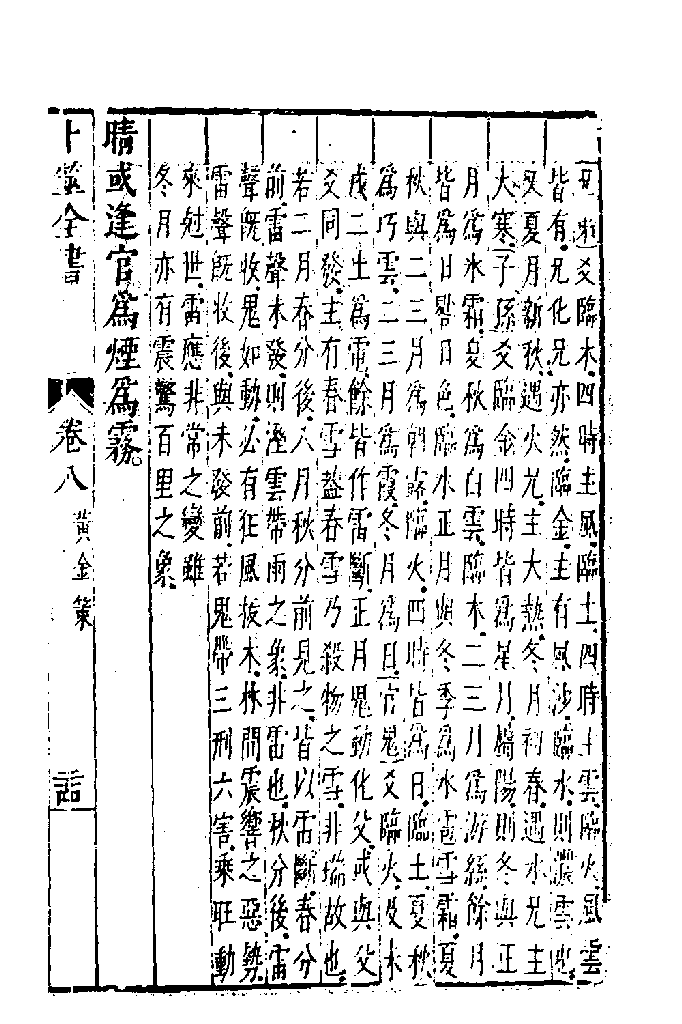 兄爻臨木四時主風臨土四時主雲臨火風雲
皆有兄化兄亦然臨金主有風沙臨水則濃雲也
又夏月新秋遇火兄主大熱冬月初春遇水兄主
大寒子孫爻臨金四時皆爲星月檐陽則冬與正
月爲氷霜夏秋爲白雲臨木二三月爲游絲餘月
皆爲日暈日色臨水正月與冬季爲氷雹雪霜夏
秋與二三月爲朝露臨火四時皆爲日臨土夏秋
爲巧雲二三月爲霞冬月爲日官鬼爻臨火及木
戌二土爲電餘皆作雷斷正月鬼動化父或與父
爻同發主有春雪葢春雪乃殺物之雪非瑞故也
若二月春分後八月秋分前見之皆以雷斷春分
前雷聲未發則溼雲帶雨之象非雷也秋分後雷
聲旣收鬼如動必有狂風拔木林間震響之惡勢
雷聲旣收後與未發前若鬼帶三刑六害乘旺動
來尅世雷應非常之變雖
冬月亦有震驚百里之象
晴或逢官爲煙爲霧
卜筮全書
卷八 黃金策